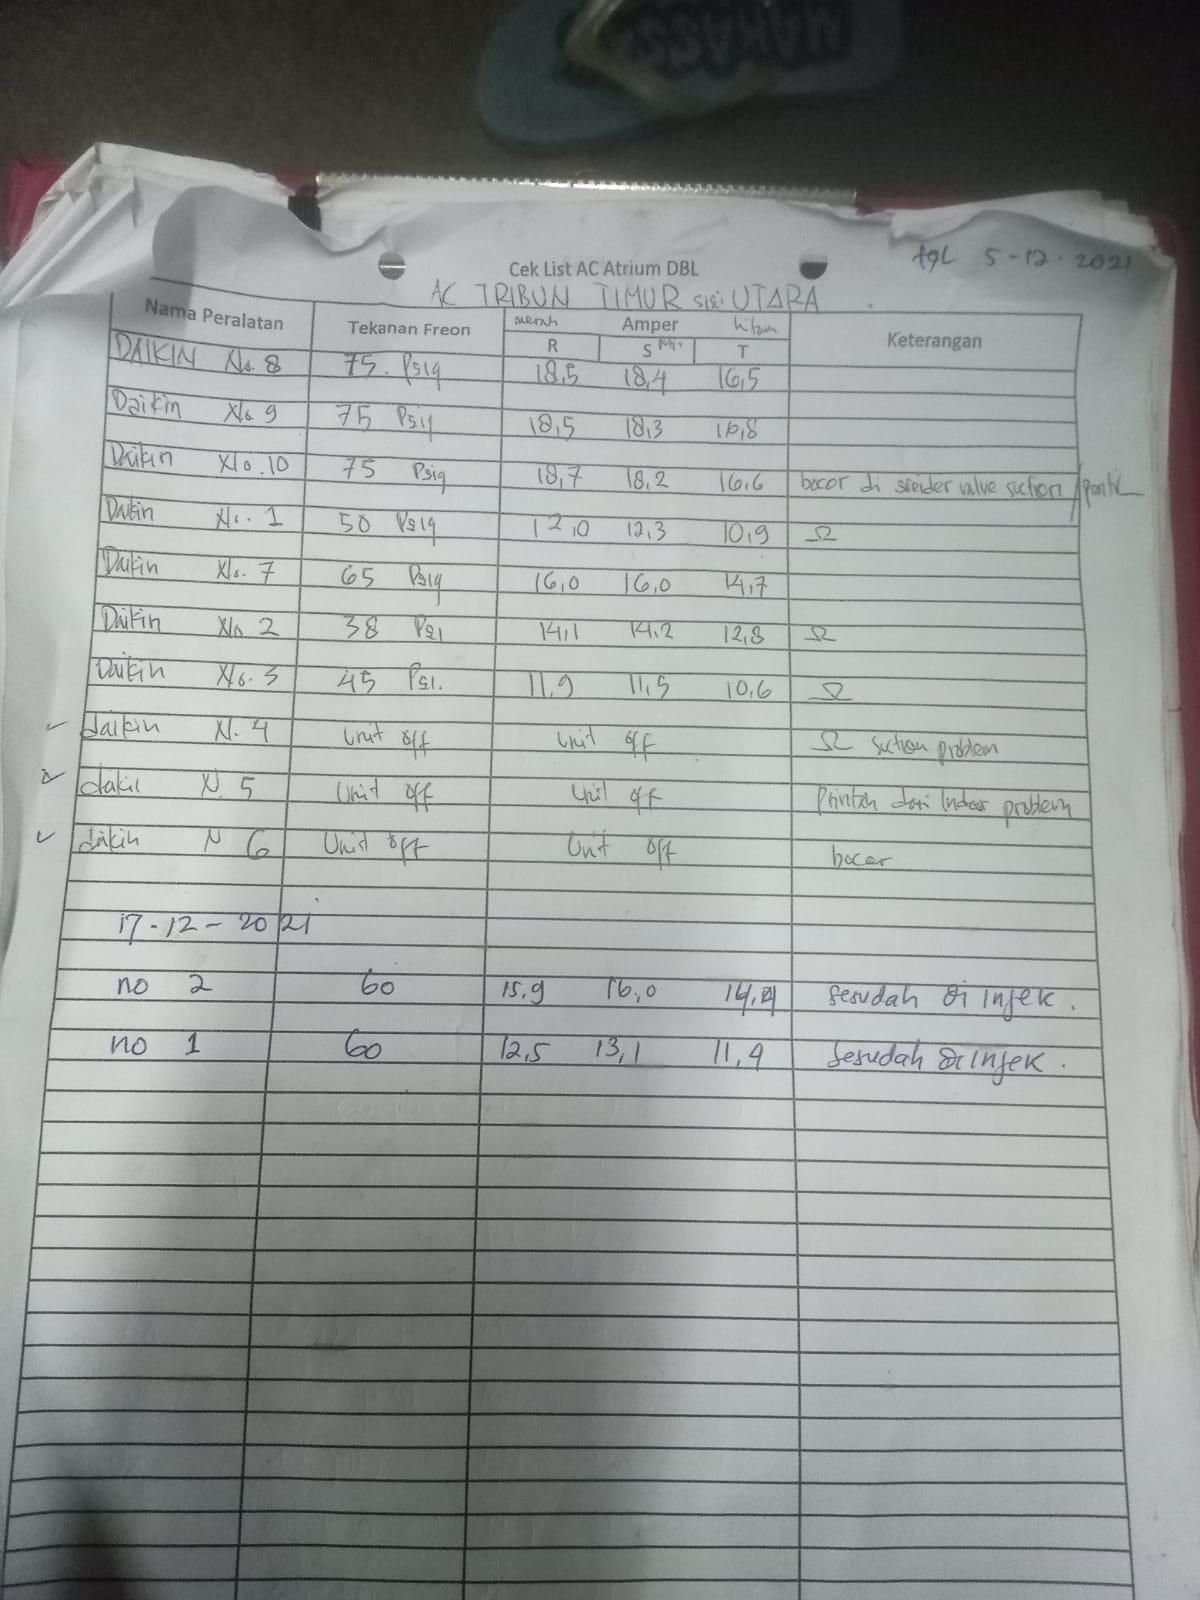 MAKASS
Cek List AC Atrium DBL
tgl 5-12-2021
AC TRIBUN TIMUR sisi UTARA
Nama Peralatan Tekanan Freon merah Amper hitam Keterangan
R S T
DAIKIN No. 8 75. Psig 18,5 18,4 16,5
Daikin No. 9 75 Psig 18,5 18,3 16,8
Daikin No. 10 75 Psig 18,7 18,2 16,6 bocor di valve suction
Daikin No. 1 50 Psig 12,0 12,3 10,9 Ω
Daikin No. 7 65 Psig 16,0 16,0 14,7
Daikin No 2 38 Psi 14,1 14,2 12,8 Ω
Daikin No. 3 45 Psi. 11,9 11,5 10,6 Ω
✓ daikin N. 4 Unit off Unit off Ω suction problem
N. 5 Unit off Unit off dari Indoor problem
✓ daikin N 6 Unit off Unit off bocor
17-12-2021
no 2 60 15,9 16,0 sesudah di injek.
no 1 60 12,5 13,1 11,9 sesudah di injek.